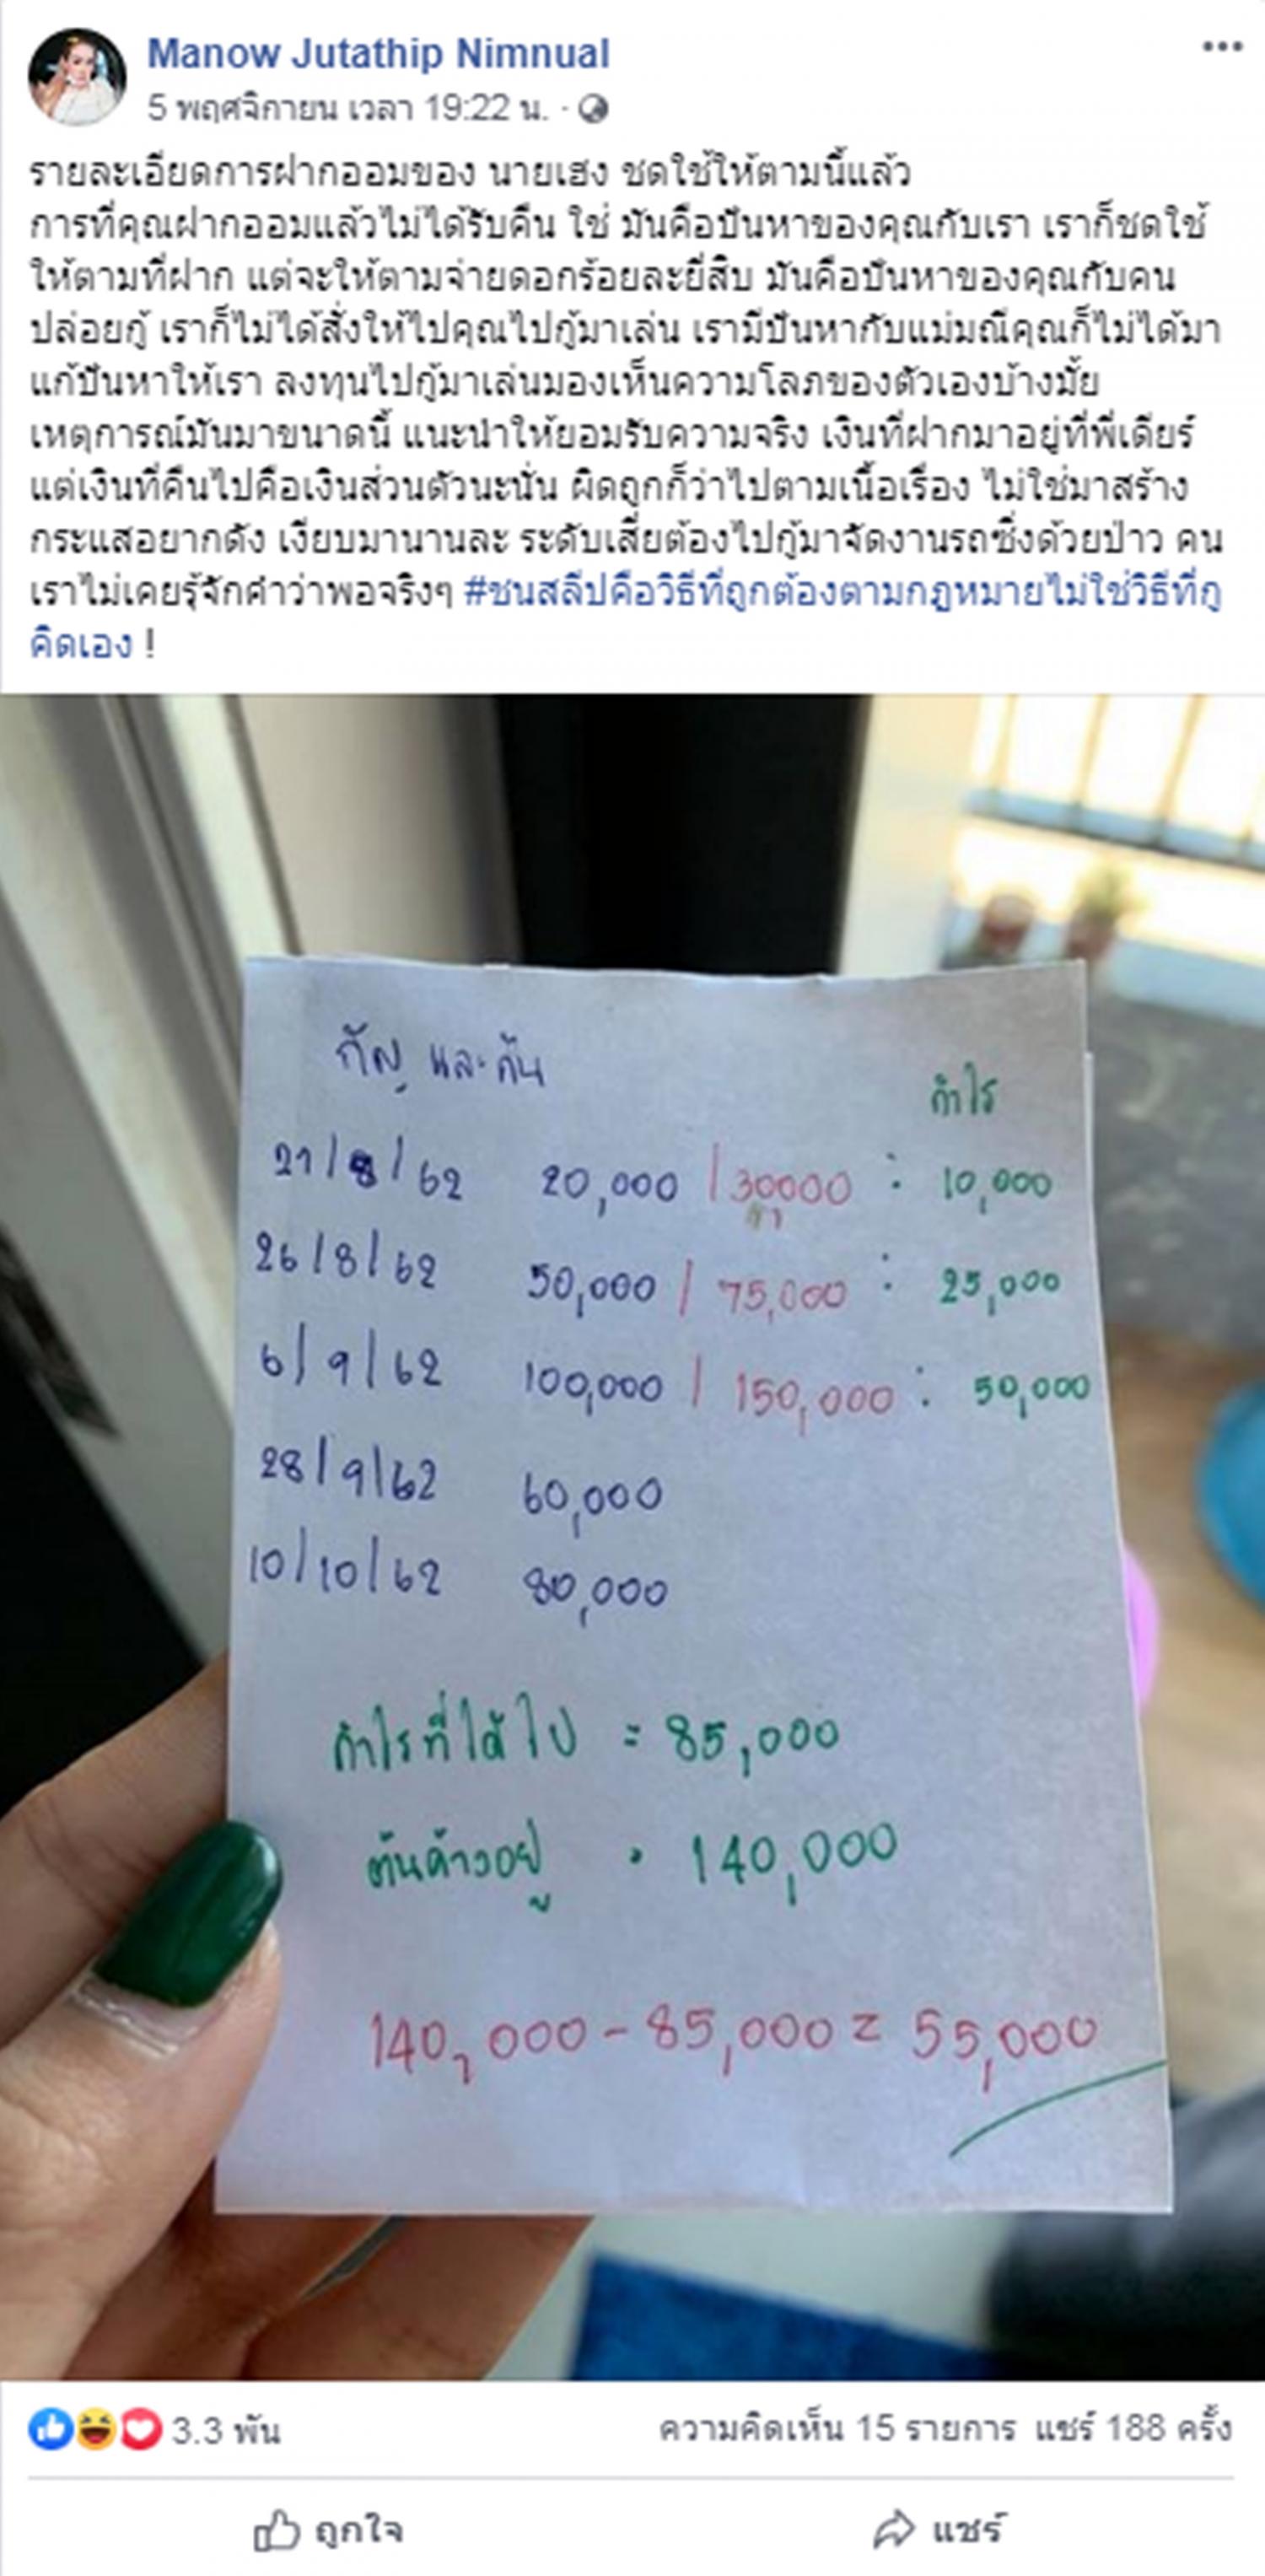 Manow Jutathip Nimnual
5 พฤศจิกายน เวลา 19:22 น. ·
รายละเอียดการฝากออมของ นายเฮง ชดใช้ให้ตามนี้แล้ว
การที่คุณฝากออมแล้วไม่ได้รับคืน ใช่ มันคือปันหาของคุณกับเรา เราก็ชดใช้
ให้ตามที่ฝาก แต่จะให้ตามจ่ายดอกร้อยละยี่สิบ มันคือปันหาของคุณกับคน
ปล่อยกู้ เราก็ไม่ได้สั่งให้ไปคุณไปกู้มาเล่น เรามีปันหากับแม่มณีคุณก็ไม่ได้มา
แก้ปันหาให้เรา ลงทุนไปกู้มาเล่นมองเห็นความโลภของตัวเองบ้างมั้ย
เหตุการณ์มันมาขนาดนี้ แนะนำให้ยอมรับความจริง เงินที่ฝากมาอยู่ที่พี่เดียร์
แต่เงินที่คืนไปคือเงินส่วนตัวนะนั่น ผิดถูกก็ว่าไปตามเนื้อเรื่อง ไม่ใช่มาสร้าง
กระแสอยากดัง เงียบมานานละ ระดับเสี่ยต้องไปกู้มาจัดงานรถซิ่งด้วยป่าว คน
เราไม่เคยรุ้จักคำว่าพอจริงๆ #ชนสลีปคือวิธีที่ถูกต้องตามกฎหมายไม่ใช่วิธีที่กู
คิดเอง !
และต้น
กำไร
21/8/62 20,000 / 30000 : 10,000
26/8/62 50,000 / 75,000 : 25,000
6/9/62 100,000 / 150,000 : 50,000
28/9/62 60,000
10/10/62 80,000
กำไรที่ได้ไป = 85,000
ต้นค้างอยู่ · 140,000
140,000 - 85,000 = 55,000
3.3 พัน ความคิดเห็น 15 รายการ แชร์ 188 ครั้ง
ถูกใจ แชร์